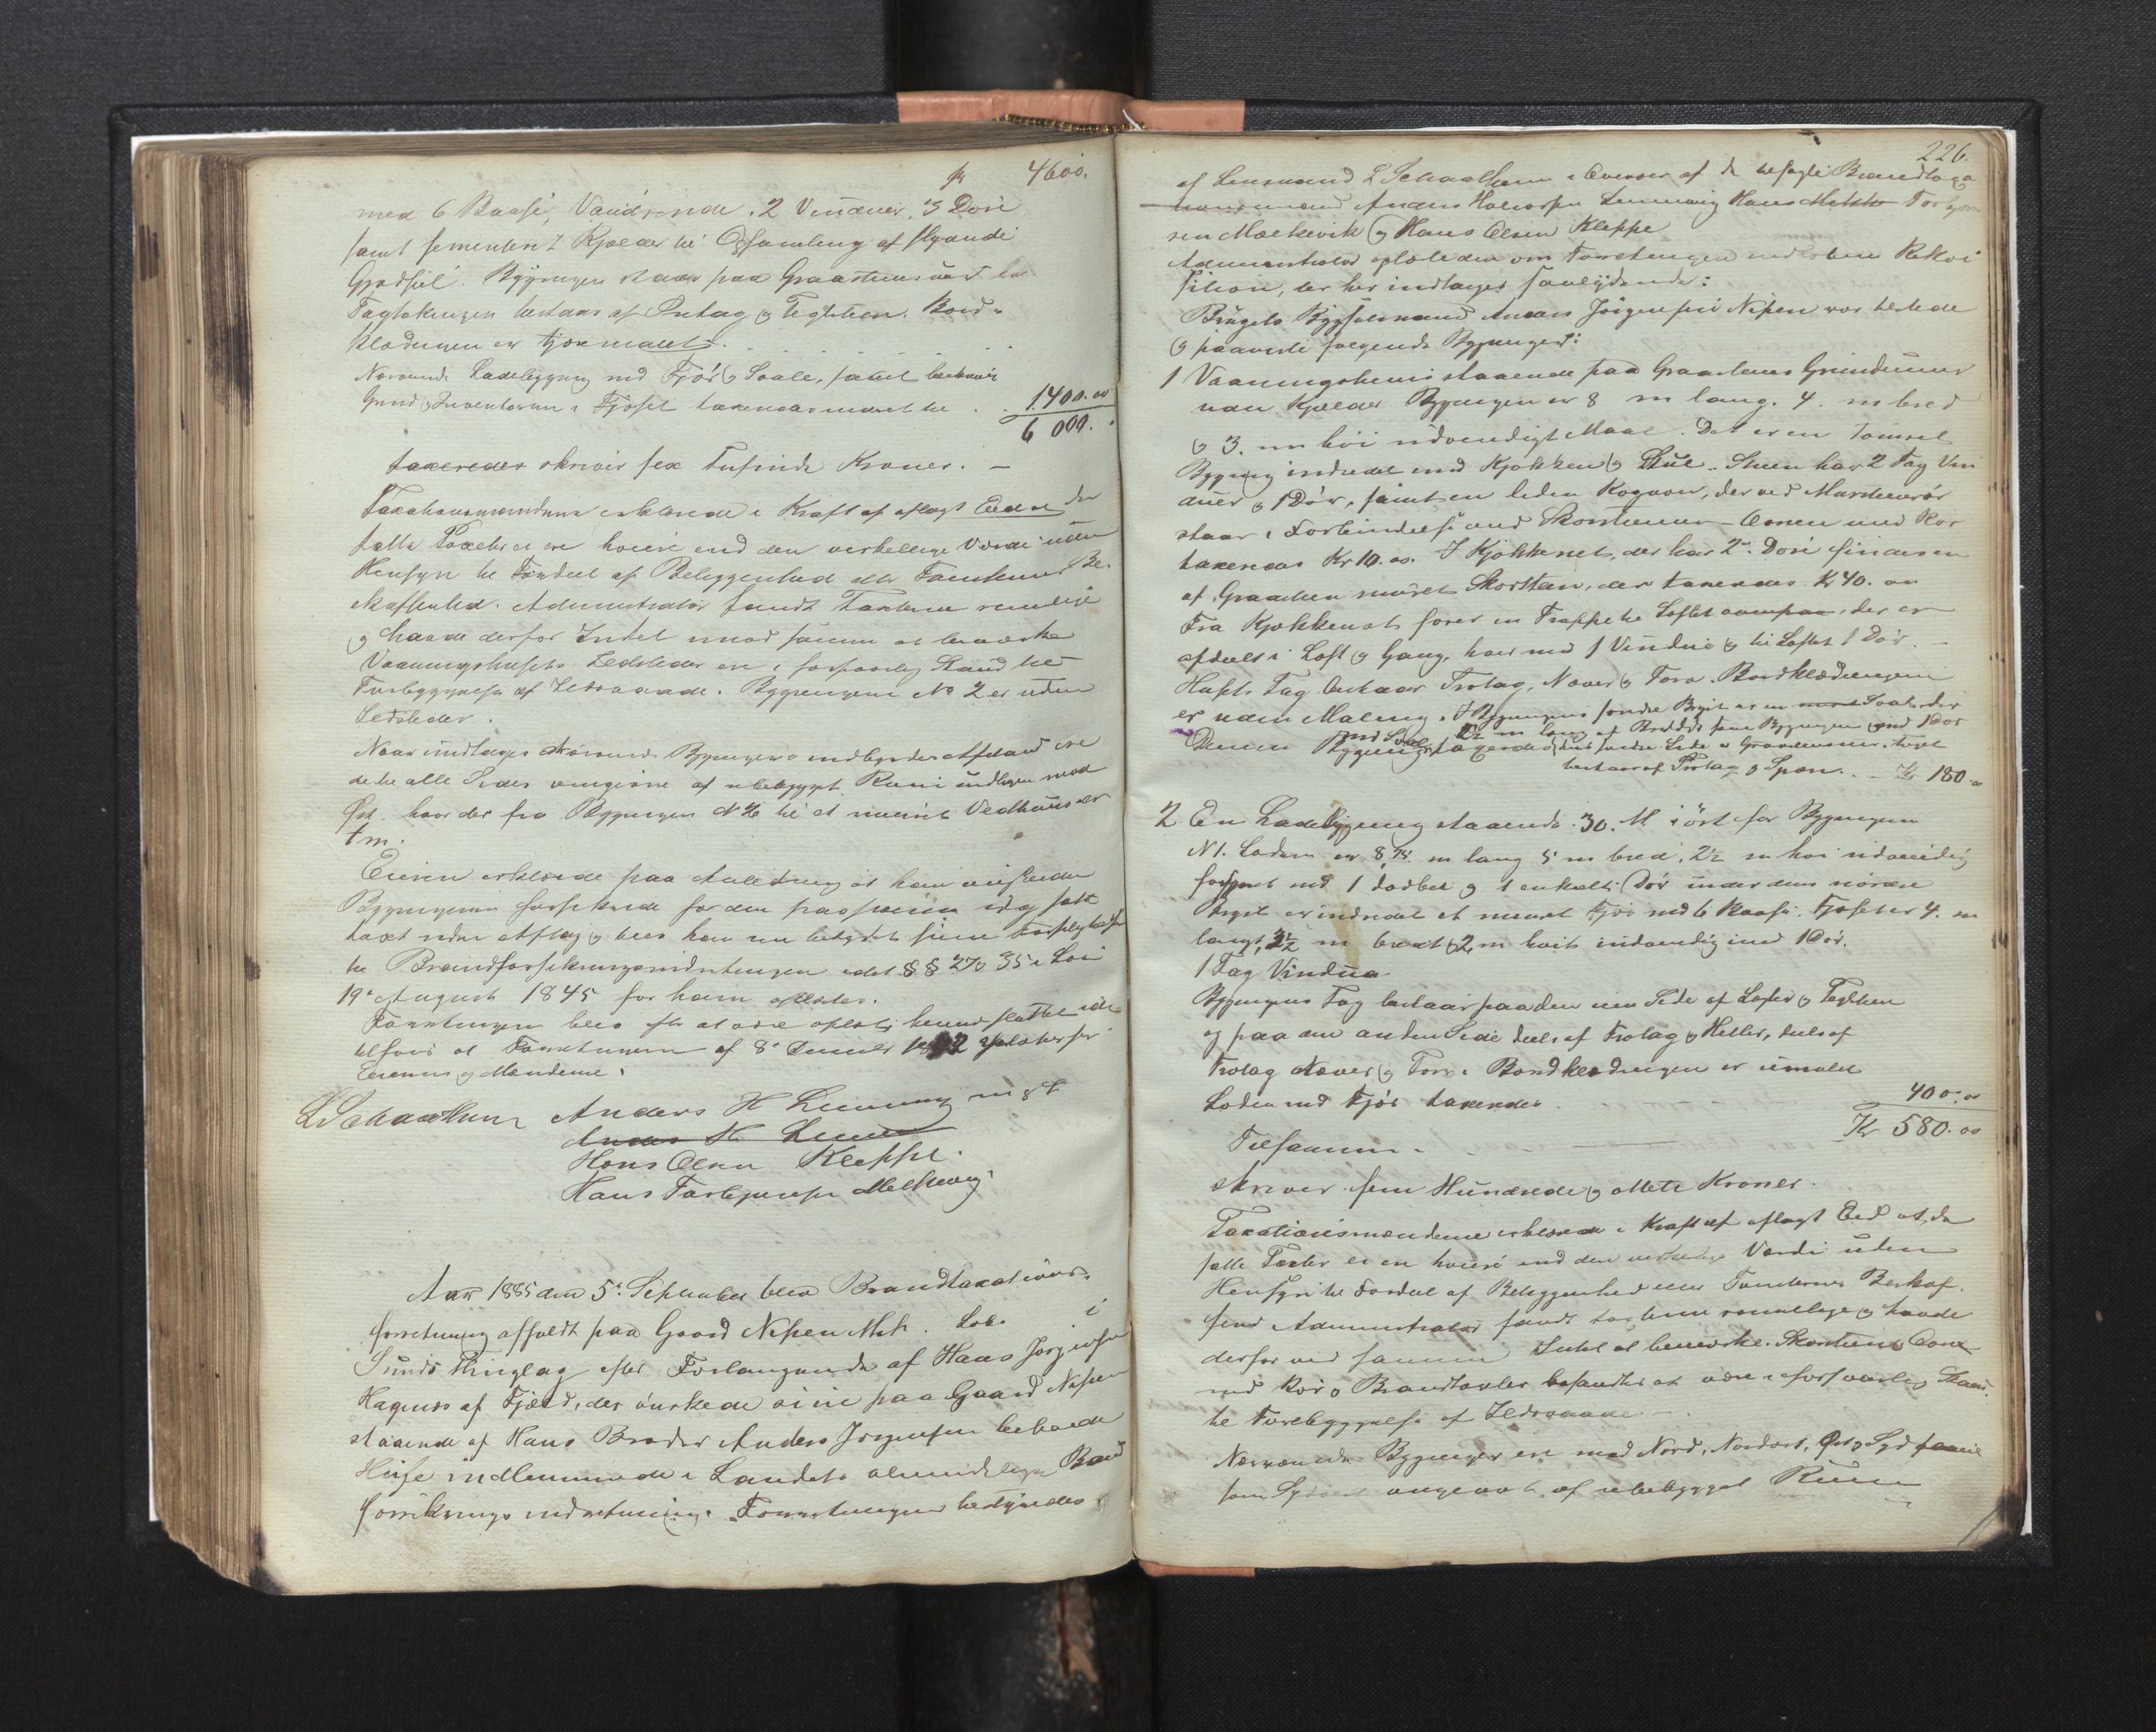 fr 4600.
med 6 Baase, Vandrende, 2 Vinduer, 3 Döre
samt sementeret Kjælder til Opsamling af flydende
Gjødsel. Bygningen staar paa Graasteensmur
Tagtækningen bestaar af Trotag og Teglsteen. Bord-
klædningen er tjæremalet.
Nævnte Ladebygning med Fjös og Svale, samt
Grund og Inventarium i Fjöset taxeredes 1400.00
6000.
taxeredes skriver sex Tusinde Kroner. —
Taxationsmændene erklærede i Kraft af aflagt Eed at den
satte Taxter ei ere höiere end den virkelige Værdi uden
Hensyn til Fordeel af Beliggenhed eller Tomternes Be-
skaffenhed. Administrator fandt Taxterne rimelige
og havde derfor Intet mod samme at bemærke
Vaaningshusets Ildsteder ere i forsvarlig Stand til
Forebyggelse af Ildsvaade. Bygningen No 2 er uden
Ildsteder.
Naar undtages nævnte Bygningers indbyrdes Afstand ere
de til alle Sider omgivne af ubebygget Rum undtagen mod
Öst hvor der fra Bygningen No 2 til et muret Vedhuus er
7 m.
Eieren erklærede paa Anledning at han önskede
Bygningerne forsikrede for den paa samme idag satte
taxt uden Afslag og blev han nu betydet sine Forpligtelser
til Brandforsikringsindretningen idet §§ 27 og 35 i Lov
19de August 1845 for ham oplæstes.
Forretningen blev efter at være oplæst hermed sluttet idet
tilföies at Forretningen af 8de 1872 oplæstes for
Eieren og Mændene.
L Schaathun Anders H Lerning
Anders H Lerning
Hans Olsen Kleppe.
Hans Torbjörnsen Melkevig
Aar 1885 den 5te September blev Brandtaxations-
forretning afholdt paa Gaard Nipen Mtr. Lob. i
Sunds Thinglag efter Forlangende af Hans Jörgensen
Hagenæs af Fjæld, der önskede sine paa Gaard Nipen
staaende af Hans Broder Anders Jörgensen beboede
Huse indlemmede i Landets almindelige Brand
forsikrings indretning. Forretningen bestyredes
226.
af Lensmand L Schaathun i Overvær af de befalede Brandtaxa
tionsmænd Anders Halvorsen Lerning Hans Torbjörn
sen Melkevik og Hans Olsen Kleppe
Administrator oplæste den om Forretningen indkomne Rekvi
sition, der her indtages saalydende:
Brugets Bygselmand Anders Jörgensen Nipen var tilstede
og paaviste fölgende Bygninger:
1 Vaaningshuus staaende paa Graasteens Grundmuur
uden Kjælder Bygningen er 8 m lang. 4. m bred
og 3. m höi udvendigt Maal. Det er en tömret
Bygning indredet med Kjökken og Stue. Stuen har 2 Fag Vin
duer og 1 Dör, samt en liden Kogovn, der ved Mursteensrör
staar i Forbindelse med Skorstenen — Ovnen med Rör
taxeredes Kr 10.00. I Kjökkenet, der har 2de Döre findes en
af Graasteen muret Skorsten, der taxeredes Kr 40.00
Fra Kjökkenet förer en Trappe til Loftet ovenpaa, der er
afdeelt i Loft og Gang, har med 1 Vindue og til Loftet 1 Dör. —
Husets Tag bestaar Trotag, Næver og Torv. Bordklædningen
er uden Maling. I Bygningens söndre Bryst er en Sval, der
m lang af Bredde som Bygningen med 1 Dör
Denne Bygning med Sval taxeredes söndre Side er Graasteensmur. Taget
bestaar af Trotag og Spon. . — Kr 180.00
2 En Ladebygning staaende 30. M i öst for Bygningen
N 1. Laden er 8,75. m lang 5 m bred, 2½ m höi udvendig
forsynet med 1 dobbel og 1 enkelt Dör under dens nordre
Bryst er indredet et muret Fjös med 6 Baase. Fjöset er 4. m
langt, 3½ m bredt og 2 m höit indvendig med 1 Dör.
1 Fag Vindue
Bygningens Tag bestaar paa den ene Side af Lægter og Teglsteen
og paa den anden Side deels af Trotag og Heller, deels af
Trotag Næver og Torv. Bordklædningen er umalet
Laden med Fjös taxeredes 400.00
Tilsammen Kr 580.00
skriver fem Hundrede og ottete Kroner.
Taxationsmændene erklærede i Kraft af aflagt Eed at de
satte Taxter ei ere höiere end den virkelige Værdi uden
Hensyn til Fordeel af Beliggenhed eller Tomternes Beskaf-
fenhed. Administrator fandt taxterne rimelige og havde
derfor ved samme Intet at bemærke. Skorstene Ovne
med Rör og Brandtavler befandtes at være i forsvarlig Stand
til Forebyggelse af Ildsvaade —
Nærværende Bygninger ere mod Nord, Nordost, Öst og Syd samt
som Sydvest omgivet af ubebygget Rum